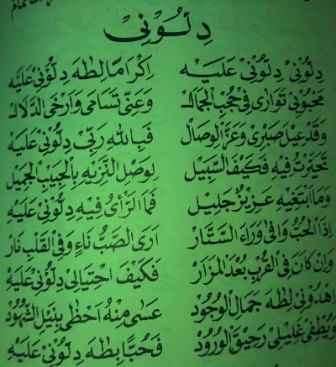 دِلُّوْنِيْ
دِلُّوْنِيْ دِلُّوْنِيْ عَلَيْهِ إِكْرَامًا لِطٰهَ دِلُّوْنِيْ عَلَيْهِ
مَحْبُوْبِيْ تَوَارَى فِيْ حُجُبِ الْجَمَالْ وَعَنِّيْ تَسَامَى وَأَرْخَى الدَّلَالْ
وَقَدْ عِيْلَ صَبْرِيْ وَعَزَّ الْوِصَالْ فَبِاللهِ رَبِّيْ دِلُّوْنِيْ عَلَيْهِ
تَحَيَّرْتُ فِيْهِ فَكَيْفَ السَّبِيْل لِوَصْلِ النَّزِيْهِ بِالْحَبِيْبِ الْجَمِيْل
وَمَا ابْتَغِيْهِ عَزِيْزٌ جَلِيْل فَمَا الرَّأْيُ فِيْهِ دِلُّوْنِيْ عَلَيْهِ
إِذَا الْحُبُّ وَافَى وَرَاءَ السَّتَّار أَرَى الصَّبَّ نَاءٍ وَفِي الْقَلْبِ نَار
وَإِنْ كَانَ فِي الْقُرْبِ بُعْدُ الْمَزَار فَكَيْفَ احْتِيَالِيْ دِلُّوْنِيْ عَلَيْهِ
اهْدُوْنِيْ لِطٰهَ جَمَالِ الْوُجُوْد عَسَى مِنْهُ أَحْظَى بِنَيْلِ الشُّهُوْد
وَيُطْفِيْ غَلِيْلِيْ رَحِيْقُ الْوُرُوْد فَحُبًّا بِطٰهَ دِلُّوْنِيْ عَلَيْهِ